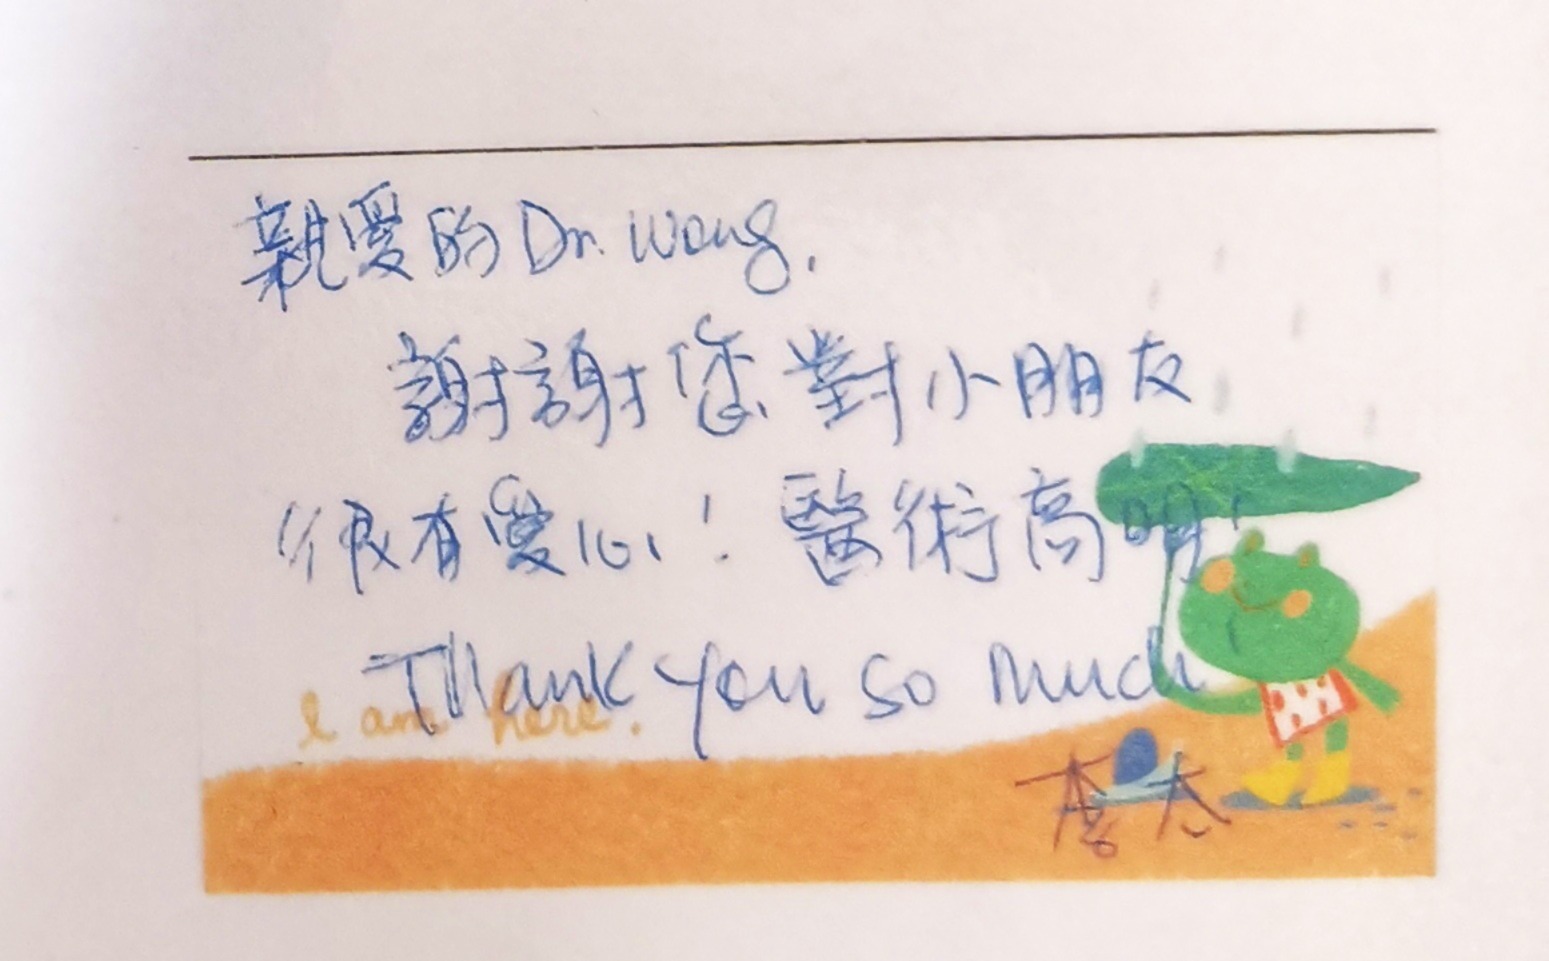 親愛的 Dr. Wang,
謝謝您對小朋友
很有愛心! 醫術高明!
Thank you so much
I am here.
李太